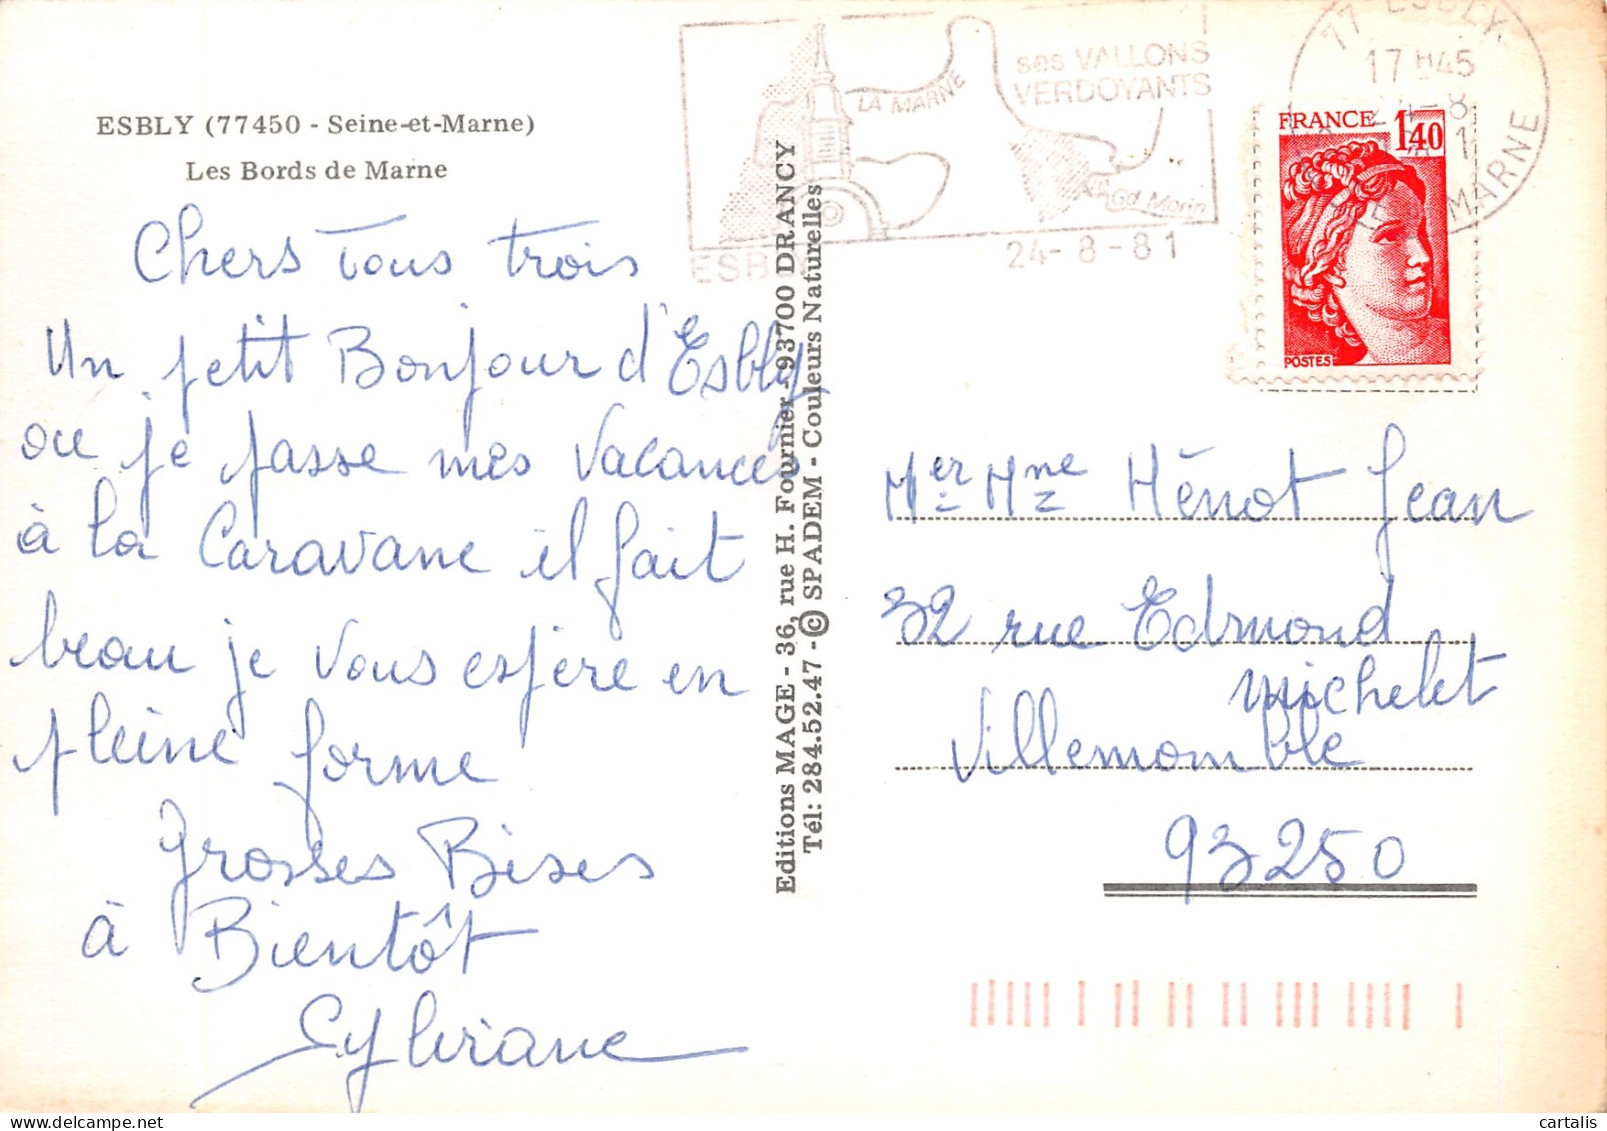 ESBLY (77450 - Seine-et-Marne)
Les Bords de Marne
Chers Tous trois
Un petit Bonjour d'Esbly
ou je passe mes Vacances
à la Caravane il fait
beau je vous espère en
pleine forme
Grosses Bises
à Bientôt
Sylviane
Editions MAGE - 36, rue H. Fournier - 93700 DRANCY
Tél: 284.52.47 - © SPADEM - Couleurs Naturelles
LA MARNE
ses VALLONS
VERDOYANTS
Gd Morin
ESBLY
24-8-81
77 ESBLY
17 H45
24-8
MARNE
FRANCE 1,40
POSTES
Mer Mme Hénot Jean
32 rue Edmond
Michelet
Villemomble
93250
cartalis